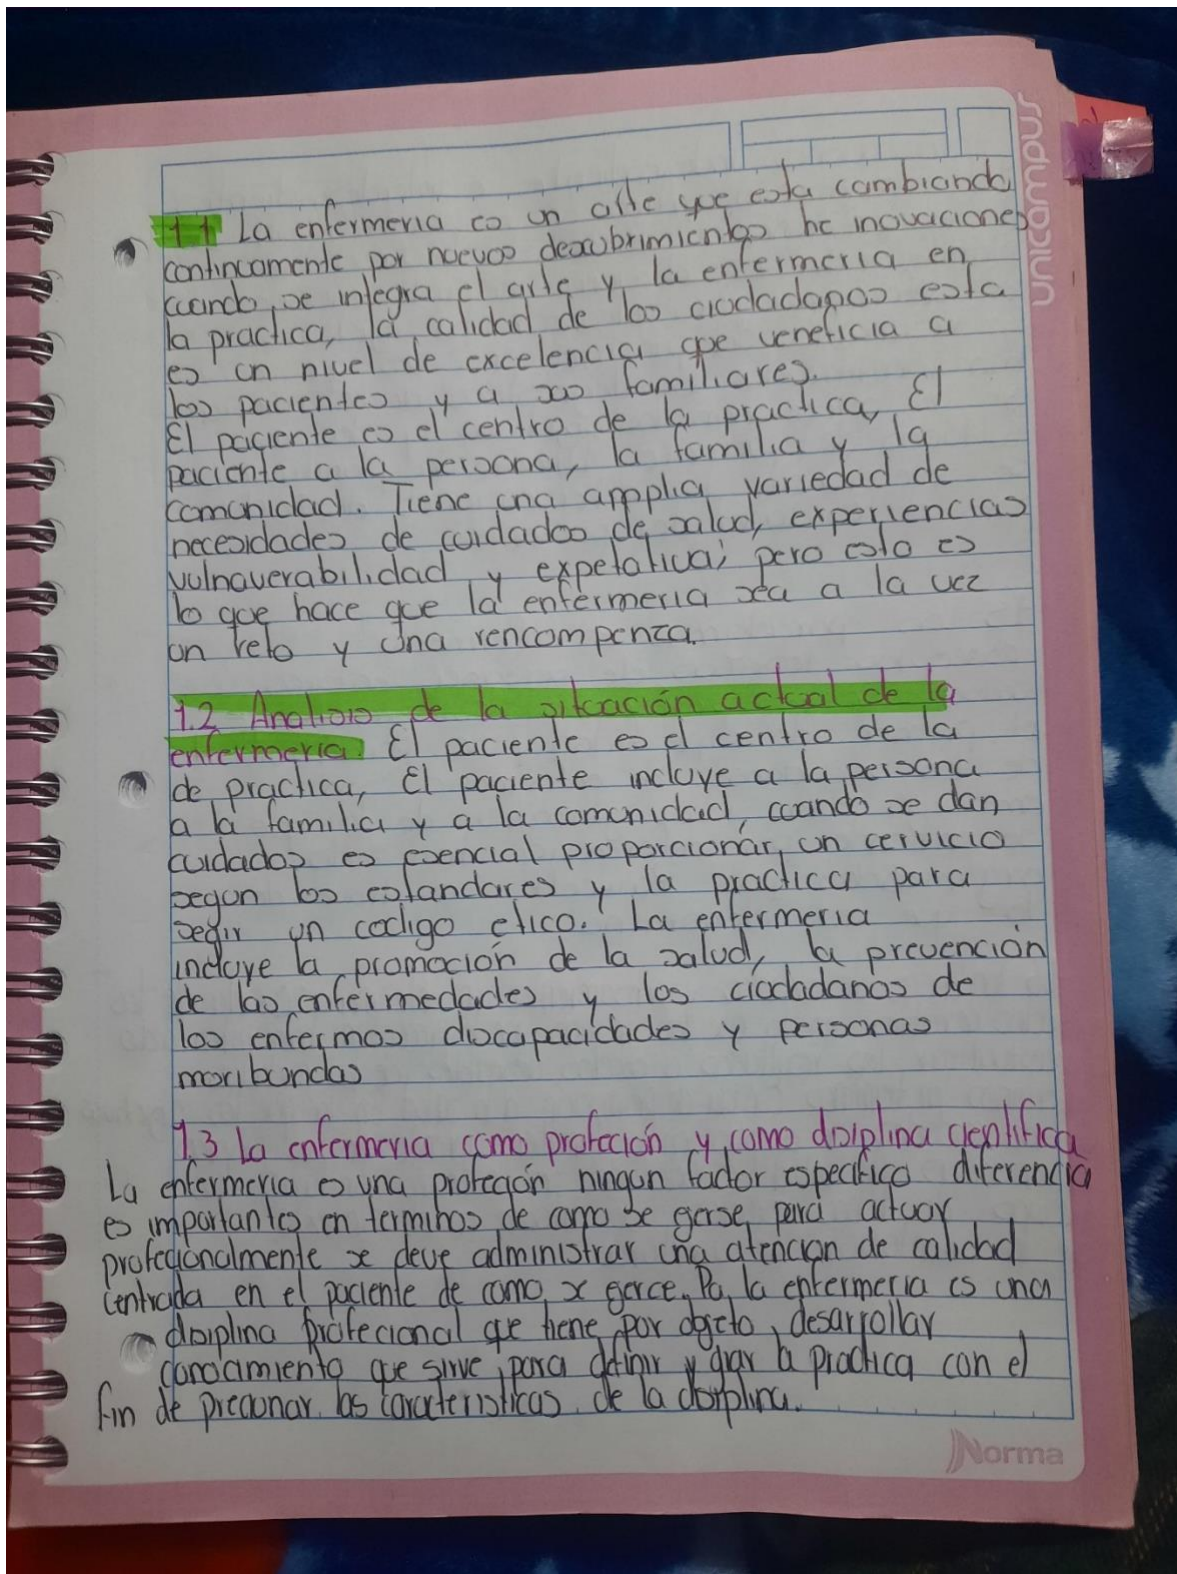 unicampus
1.1 La enfermeria es un arte que esta cambiando
continuamente por nuevos descubrimientos he inovaciones
cuando se integra el arte y la enfermeria en
la practica, la calidad de los ciudadanos esta
es un nivel de excelencia que veneficia a
los pacientes y a sus familiares.
El paciente es el centro de la practica, El
paciente a la persona, la familia y la
comunidad. Tiene una ampplia variedad de
necesidades de cuidados de salud, experiencias
vulnaverabilidad y expetativa; pero esto es
lo que hace que la enfermeria sea a la vez
un reto y una rencompenza.
1.2 Analisis de la situación actual de la
enfermeria. El paciente es el centro de la
de practica, El paciente incluye a la persona
a la familia y a la comunidad, cuando se dan
cuidados es esencial proporcionar un cervicio
segun los estandares y la practica para
segir un codigo etico. La enfermeria
incluye la promoción de la salud, la prevención
de las enfermedades y los ciudadanos de
los enfermos discapacidades y personas
moribundas
1.3 la enfermeria como profeción y como disiplina cientifica
La enfermeria es una profeción ningun factor especifico diferencia
es importantes en terminos de como se gerse, para actuar
profecionalmente se deve administrar una atencion de calidad
centrada en el paciente de como se gerce. la enfermeria es una
disiplina profecional que tiene por objeto, desarrollar
conocimiento que sirve para definir y giar la practica con el
fin de las caracteristicas de la disiplina.
Norma